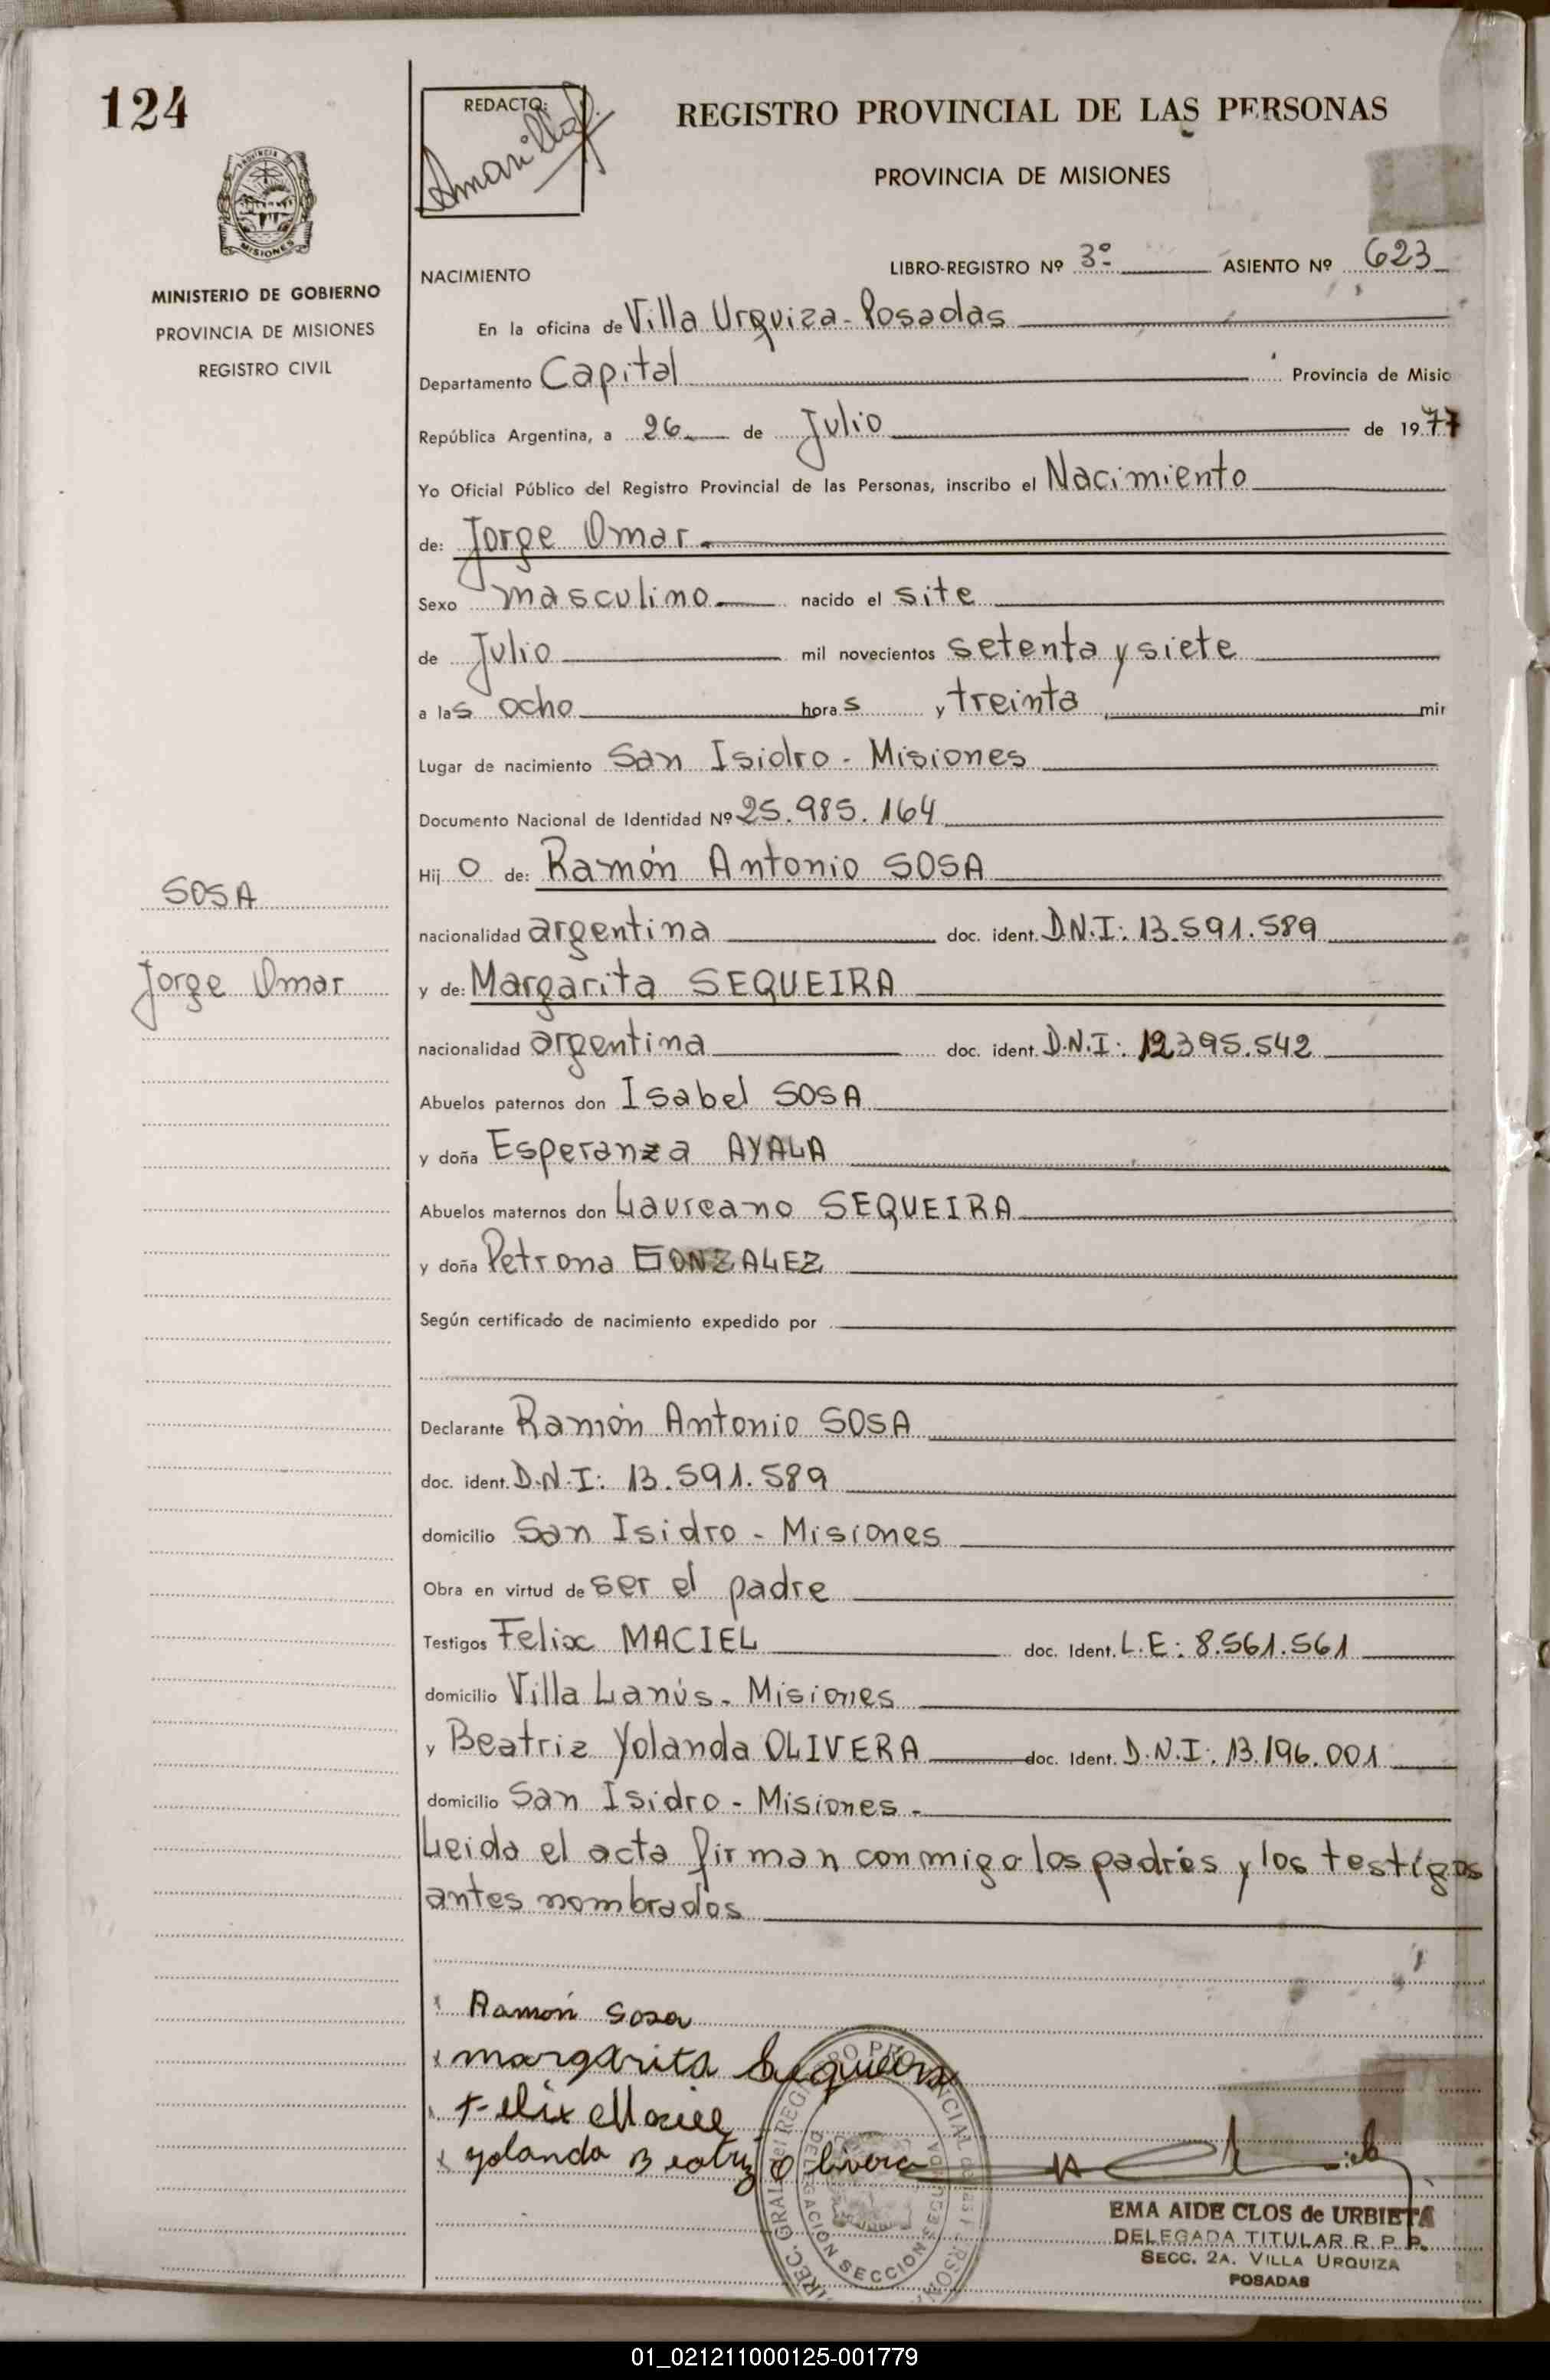 124
REDACTO:
Amarilla
REGISTRO PROVINCIAL DE LAS PERSONAS
PROVINCIA DE MISIONES
PROVINCIA DE
MISIONES
MINISTERIO DE GOBIERNO
PROVINCIA DE MISIONES
REGISTRO CIVIL
NACIMIENTO
LIBRO-REGISTRO Nº 3º ASIENTO Nº 623
En la oficina de Villa Urquiza - Posadas
Departamento Capital Provincia de Misio
República Argentina, a 26 de Julio de 1977
Yo Oficial Público del Registro Provincial de las Personas, inscribo el Nacimiento
de: Jorge Omar
Sexo masculino nacido el site
de Julio mil novecientos setenta y siete
a las ocho horas y treinta min
Lugar de nacimiento San Isidro - Misiones
Documento Nacional de Identidad Nº 25.985.164
Hijo de: Ramón Antonio SOSA
SOSA
nacionalidad argentina doc. ident. D.N.I: 13.591.589
Jorge Omar
y de: Margarita SEQUEIRA
nacionalidad argentina doc. ident. D.N.I: 12.395.542
Abuelos paternos don Isabel SOSA
y doña Esperanza AYALA
Abuelos maternos don Laureano SEQUEIRA
y doña Petrona GONZALEZ
Según certificado de nacimiento expedido por
Declarante Ramón Antonio SOSA
doc. ident. D.N.I: 13.591.589
domicilio San Isidro - Misiones
Obra en virtud de ser el padre
Testigos Felix MACIEL doc. Ident. L.E: 8.561.561
domicilio Villa Lanús - Misiones
y Beatriz Yolanda OLIVERA doc. Ident. D.N.I: 13.196.001
domicilio San Isidro - Misiones -
Leida el acta firman conmigo los padres y los testigos
antes nombrados
x Ramón Sosa
x margarita Sequeira
x Felix Maciel
x yolanda Beatriz Olivera
EMA AIDE CLOS de URBIETA
DELEGADA TITULAR R. P. P.
SECC. 2A. VILLA URQUIZA
POSADAS
01_021211000125-001779